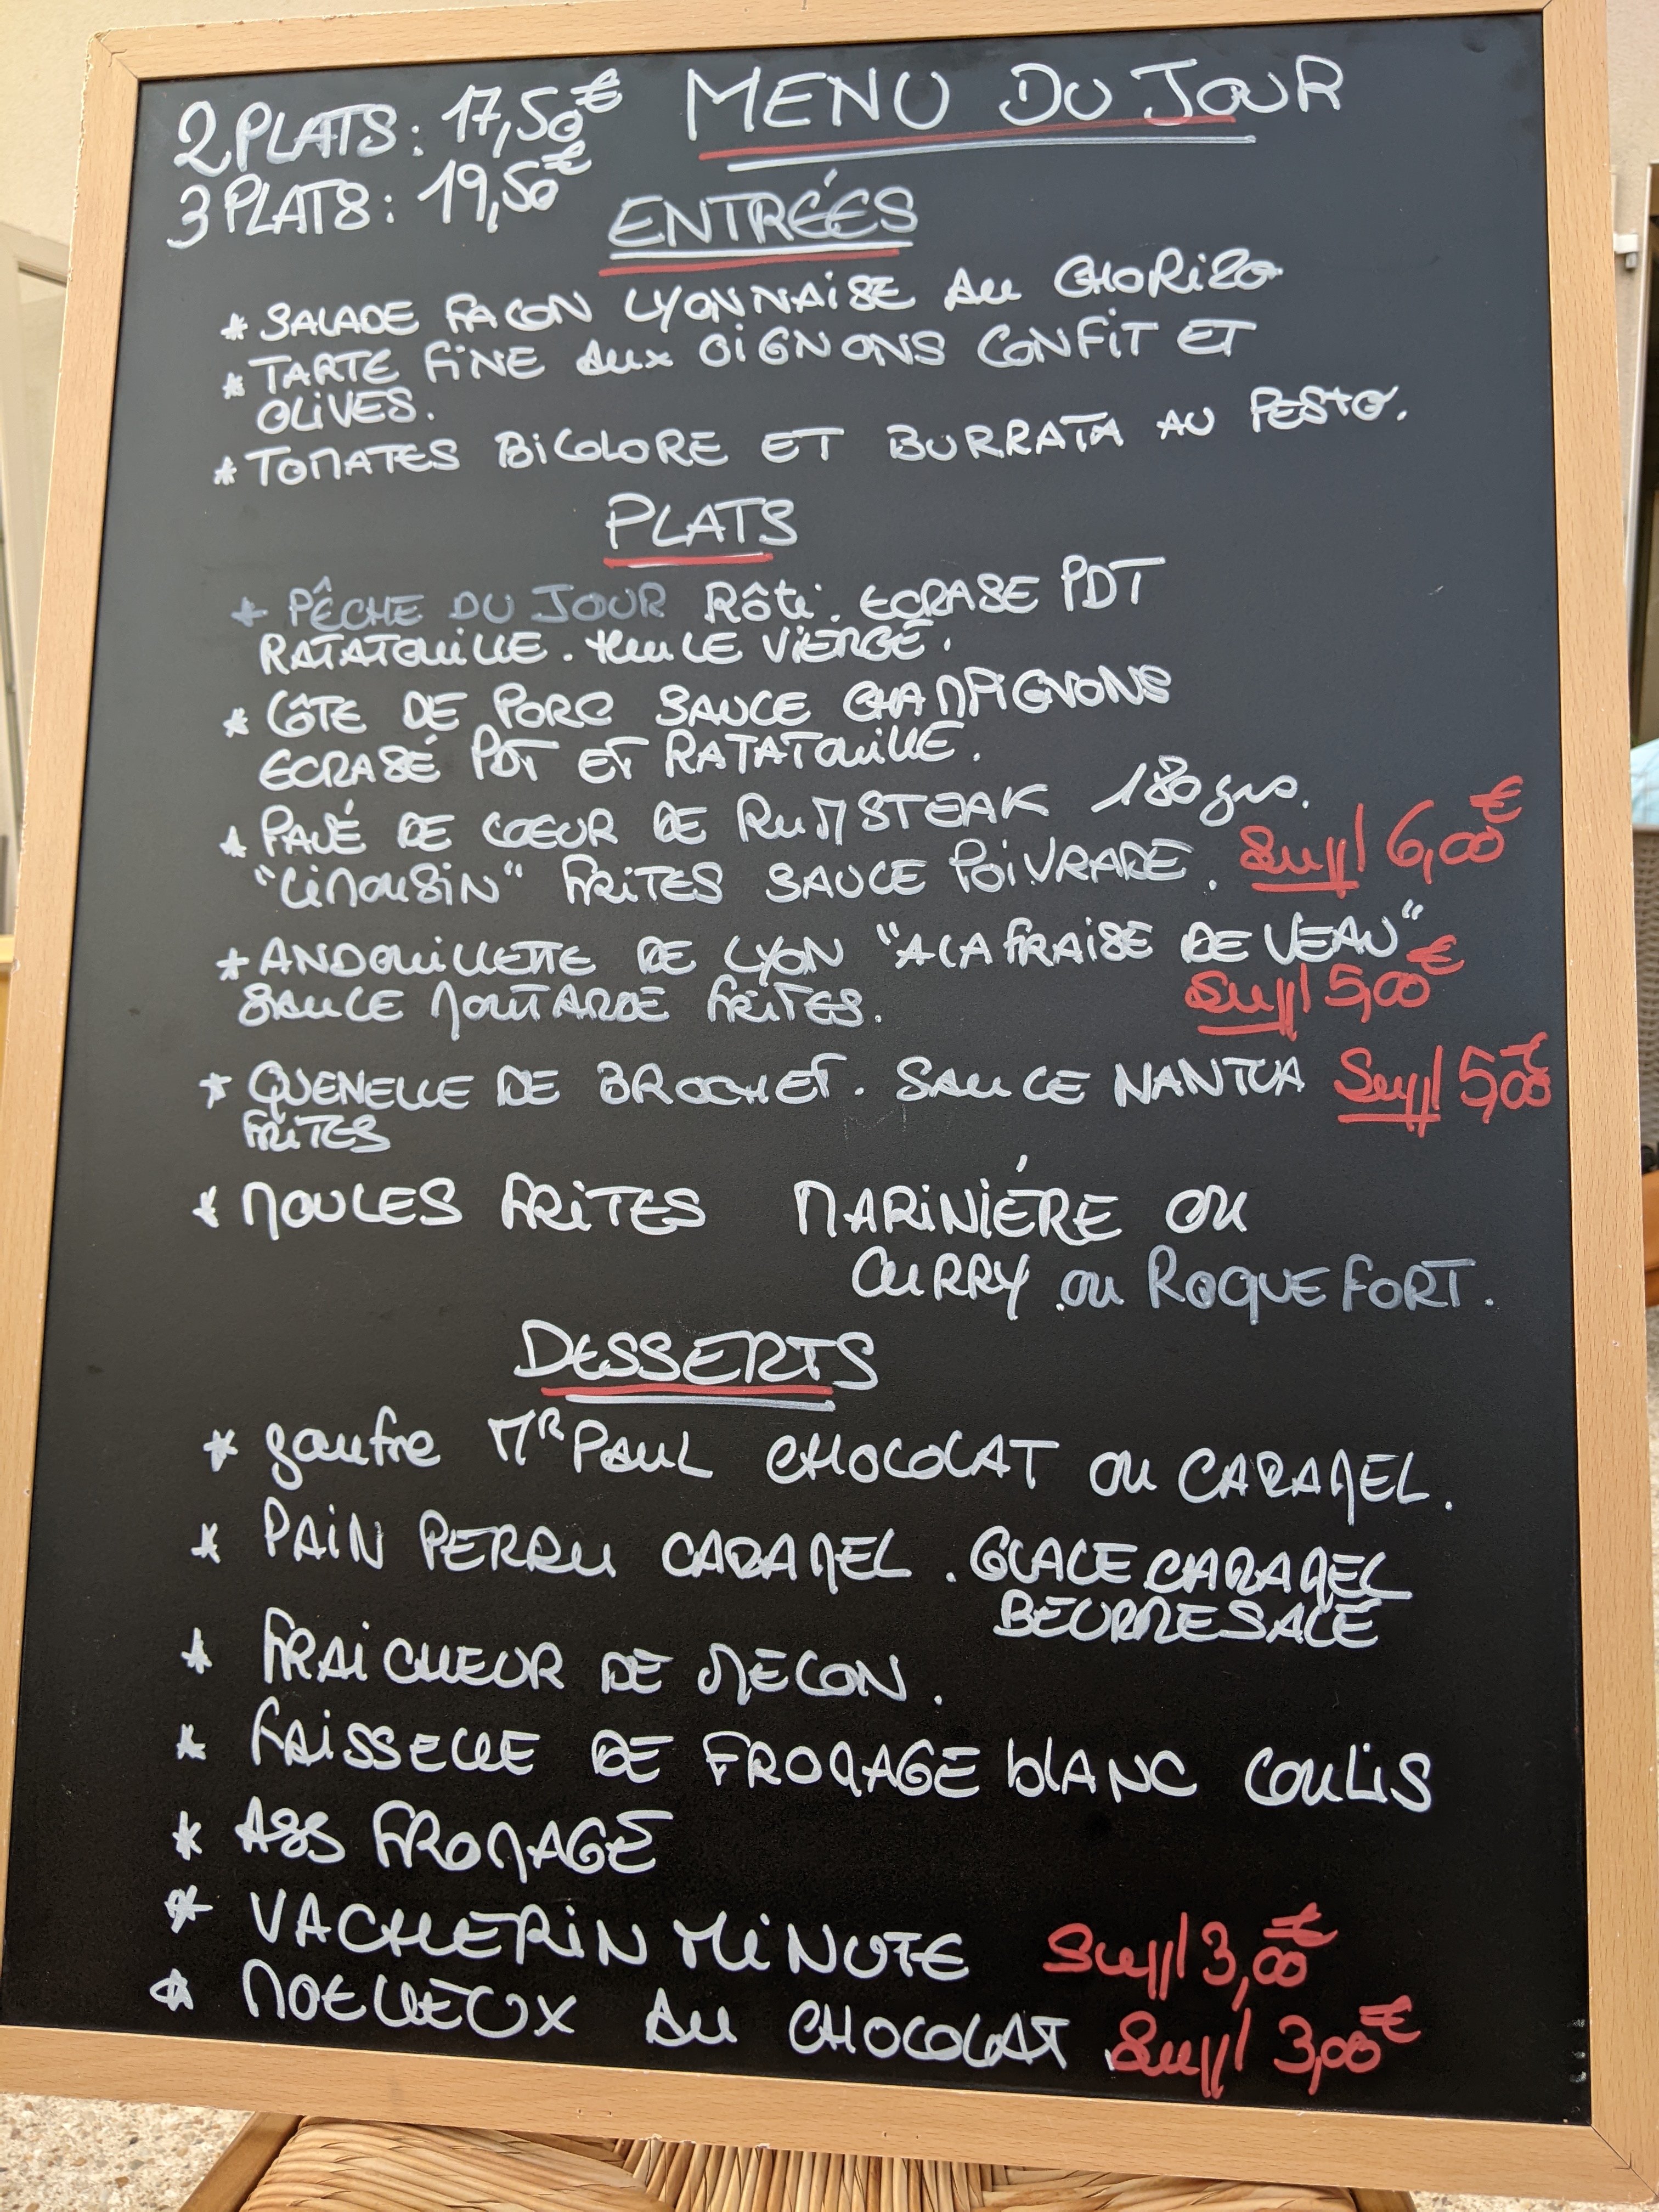 2 PLATS : 17,50€ MENU DU JOUR
3 PLATS : 19,50€
ENTRÉES
* SALADE FACON LYONNAISE AU CHORIZO
* TARTE FINE AUX OIGNONS CONFIT ET
OLIVES.
* TOMATES BICOLORE ET BURRATA AU PESTO.
PLATS
* PÊCHE DU JOUR Rôti. ECRASE PDT
RATATOUILLE. HUILE VIERGE.
* CÔTE DE PORC SAUCE CHAMPIGNONS
ECRASÉ PDT ET RATATOUILLE.
* PAVÉ DE CŒUR DE RUMSTEAK 180 grs.
"LIMOUSIN" FRITES SAUCE POIVRADE. Suppl 6,00€
* ANDOUILLETTE DE LYON "A LA FRAISE DE VEAU"
SAUCE MOUTARDE FRITES. Suppl 5,00€
* QUENELLE DE BROCHET. SAUCE NANTUA Suppl 5,00€
FRITES
* MOULES FRITES MARINIÉRE OU
CURRY ou ROQUEFORT.
DESSERTS
* gaufre MR PAUL CHOCOLAT OU CARAMEL.
* PAIN PERDU CARAMEL. GLACE CARAMEL
BEURRE SALE
* FRAICHEUR DE MELON.
* FAISSELLE DE FROMAGE BLANC COULIS
* ASS FROMAGE
* VACHERIN MINUTE Suppl 3,00€
* MOELLEUX AU CHOCOLAT Suppl 3,00€